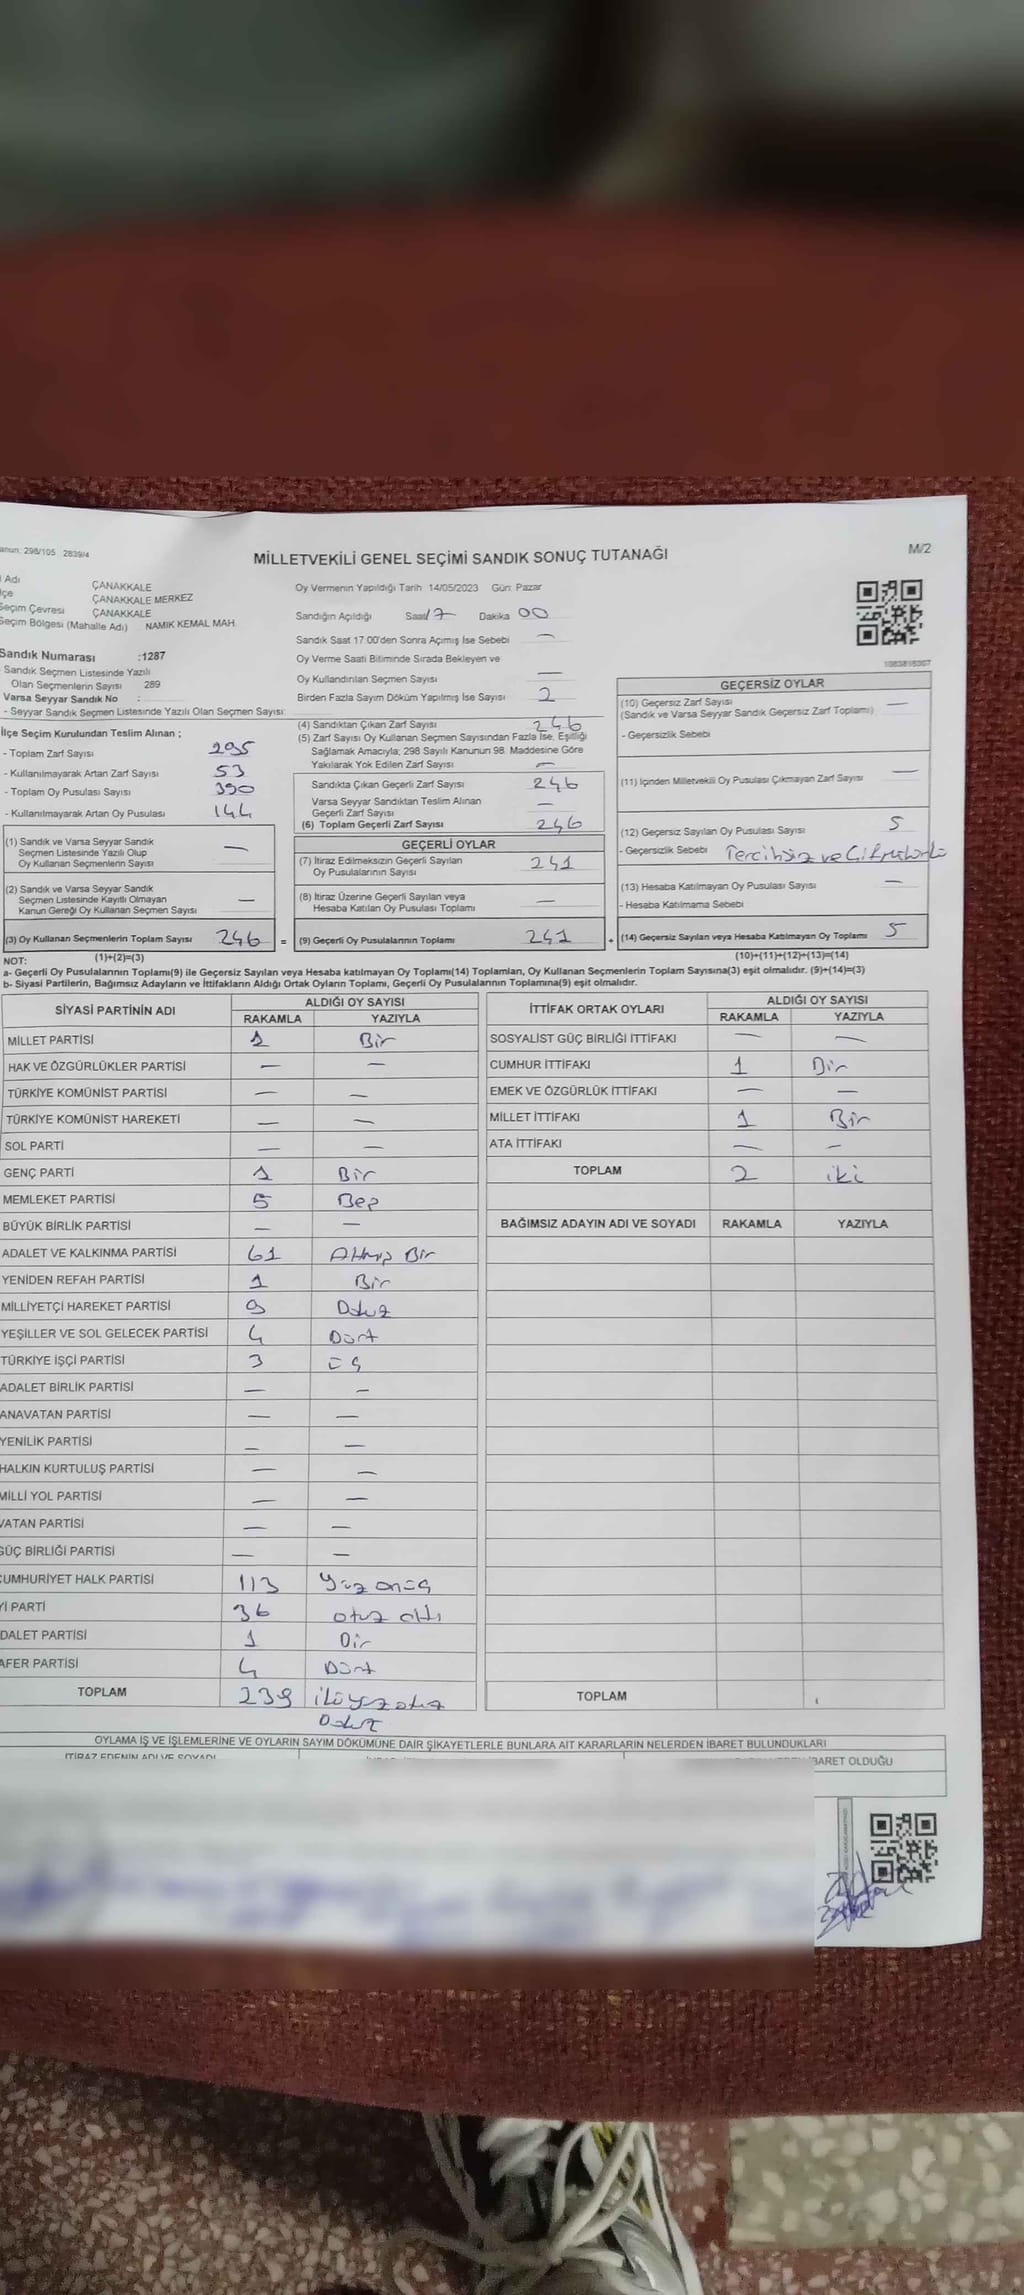 anun: 298/105 2839/4
MİLLETVEKİLİ GENEL SEÇİMİ SANDIK SONUÇ TUTANAĞI
M/2
Adı ÇANAKKALE
çe ÇANAKKALE MERKEZ
Seçim Çevresi ÇANAKKALE
Seçim Bölgesi (Mahalle Adı) NAMIK KEMAL MAH.
Sandık Numarası :1287
- Sandık Seçmen Listesinde Yazılı
Olan Seçmenlerin Sayısı 289
Varsa Seyyar Sandık No :
- Seyyar Sandık Seçmen Listesinde Yazılı Olan Seçmen Sayısı:
İlçe Seçim Kurulundan Teslim Alınan ;
- Toplam Zarf Sayısı 295
- Kullanılmayarak Artan Zarf Sayısı 53
- Toplam Oy Pusulası Sayısı 390
- Kullanılmayarak Artan Oy Pusulası 144
(1) Sandık ve Varsa Seyyar Sandık
Seçmen Listesinde Yazılı Olup
Oy Kullanan Seçmenlerin Sayısı —
(2) Sandık ve Varsa Seyyar Sandık
Seçmen Listesinde Kayıtlı Olmayan
Kanun Gereği Oy Kullanan Seçmen Sayısı —
(3) Oy Kullanan Seçmenlerin Toplam Sayısı 246 =
(1)+(2)=(3)
Oy Vermenin Yapıldığı Tarih 14/05/2023 Gün: Pazar
Sandığın Açıldığı Saat 17 Dakika 00
Sandık Saat 17:00'den Sonra Açımış İse Sebebi —
Oy Verme Saati Bitiminde Sırada Bekleyen ve
Oy Kullandırılan Seçmen Sayısı —
Birden Fazla Sayım Döküm Yapılmış İse Sayısı 2
(4) Sandıktan Çıkan Zarf Sayısı 246
(5) Zarf Sayısı Oy Kullanan Seçmen Sayısından Fazla İse, Eşitliği
Sağlamak Amacıyla; 298 Sayılı Kanunun 98. Maddesine Göre
Yakılarak Yok Edilen Zarf Sayısı —
Sandıkta Çıkan Geçerli Zarf Sayısı 246
Varsa Seyyar Sandıktan Teslim Alınan
Geçerli Zarf Sayısı —
(6) Toplam Geçerli Zarf Sayısı 246
GEÇERLİ OYLAR
(7) İtiraz Edilmeksizin Geçerli Sayılan
Oy Pusulalarının Sayısı 241
(8) İtiraz Üzerine Geçerli Sayılan veya
Hesaba Katılan Oy Pusulası Toplamı —
(9) Geçerli Oy Pusulalarının Toplamı 241 +
1083818307
GEÇERSİZ OYLAR
(10) Geçersiz Zarf Sayısı —
(Sandık ve Varsa Seyyar Sandık Geçersiz Zarf Toplamı)
- Geçersizlik Sebebi
(11) İçinden Milletvekili Oy Pusulası Çıkmayan Zarf Sayısı —
(12) Geçersiz Sayılan Oy Pusulası Sayısı 5
- Geçersizlik Sebebi Tercihsiz ve
(13) Hesaba Katılmayan Oy Pusulası Sayısı —
- Hesaba Katılmama Sebebi
(14) Geçersiz Sayılan veya Hesaba Katılmayan Oy Toplamı 5
(10)+(11)+(12)+(13)=(14)
NOT:
a- Geçerli Oy Pusulalarının Toplamı(9) ile Geçersiz Sayılan veya Hesaba katılmayan Oy Toplamı(14) Toplamları, Oy Kullanan Seçmenlerin Toplam Sayısına(3) eşit olmalıdır. (9)+(14)=(3)
b- Siyasi Partilerin, Bağımsız Adayların ve İttifakların Aldığı Ortak Oyların Toplamı, Geçerli Oy Pusulalarının Toplamına(9) eşit olmalıdır.
SİYASİ PARTİNİN ADI ALDIĞI OY SAYISI
RAKAMLA YAZIYLA
MİLLET PARTİSİ 1 Bir
HAK VE ÖZGÜRLÜKLER PARTİSİ — —
TÜRKİYE KOMÜNİST PARTİSİ — —
TÜRKİYE KOMÜNİST HAREKETİ — —
SOL PARTİ — —
GENÇ PARTİ 1 Bir
MEMLEKET PARTİSİ 5 Beş
BÜYÜK BİRLİK PARTİSİ — —
ADALET VE KALKINMA PARTİSİ 61 Atmış Bir
YENİDEN REFAH PARTİSİ 1 Bir
MİLLİYETÇİ HAREKET PARTİSİ 9 Dokuz
YEŞİLLER VE SOL GELECEK PARTİSİ 4 Dört
TÜRKİYE İŞÇİ PARTİSİ 3 üç
ADALET BİRLİK PARTİSİ — —
ANAVATAN PARTİSİ — —
YENİLİK PARTİSİ — —
HALKIN KURTULUŞ PARTİSİ — —
MİLLİ YOL PARTİSİ — —
VATAN PARTİSİ — —
GÜÇ BİRLİĞİ PARTİSİ — —
CUMHURİYET HALK PARTİSİ 113 Yüz onüç
Yİ PARTİ 36 otuz altı
DALET PARTİSİ 1 Bir
AFER PARTİSİ 4 Dört
TOPLAM 239 ikiyüzotuz
Dokuz
İTTİFAK ORTAK OYLARI ALDIĞI OY SAYISI
RAKAMLA YAZIYLA
SOSYALİST GÜÇ BİRLİĞİ İTTİFAKI — —
CUMHUR İTTİFAKI 1 Bir
EMEK VE ÖZGÜRLÜK İTTİFAKI — —
MİLLET İTTİFAKI 1 Bir
ATA İTTİFAKI — —
TOPLAM 2 iki
BAĞIMSIZ ADAYIN ADI VE SOYADI RAKAMLA YAZIYLA
TOPLAM
OYLAMA İŞ VE İŞLEMLERİNE VE OYLARIN SAYIM DÖKÜMÜNE DAİR ŞİKAYETLERLE BUNLARA AİT KARARLARIN NELERDEN İBARET BULUNDUKLARI
İTİRAZ EDENİN ADI VE SOYADI
İBARET OLDUĞU